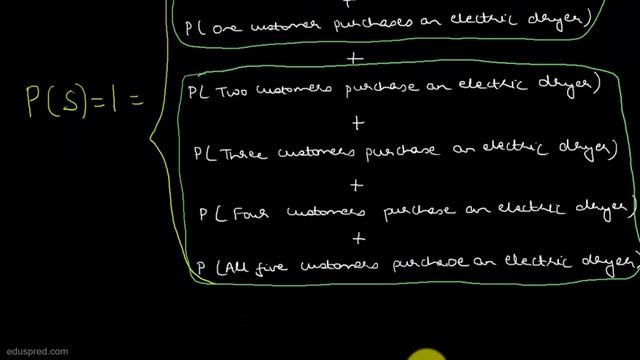 +
P( one customer purchases an electric dryer)
+
P(S)=1=
P( Two customers purchase an electric dryer)
+
P( Three customers purchase an electric dryer)
+
P ( Four customers purchase an electric dryer)
+
P (All five customers purchase an electric dryer)
eduspred.com